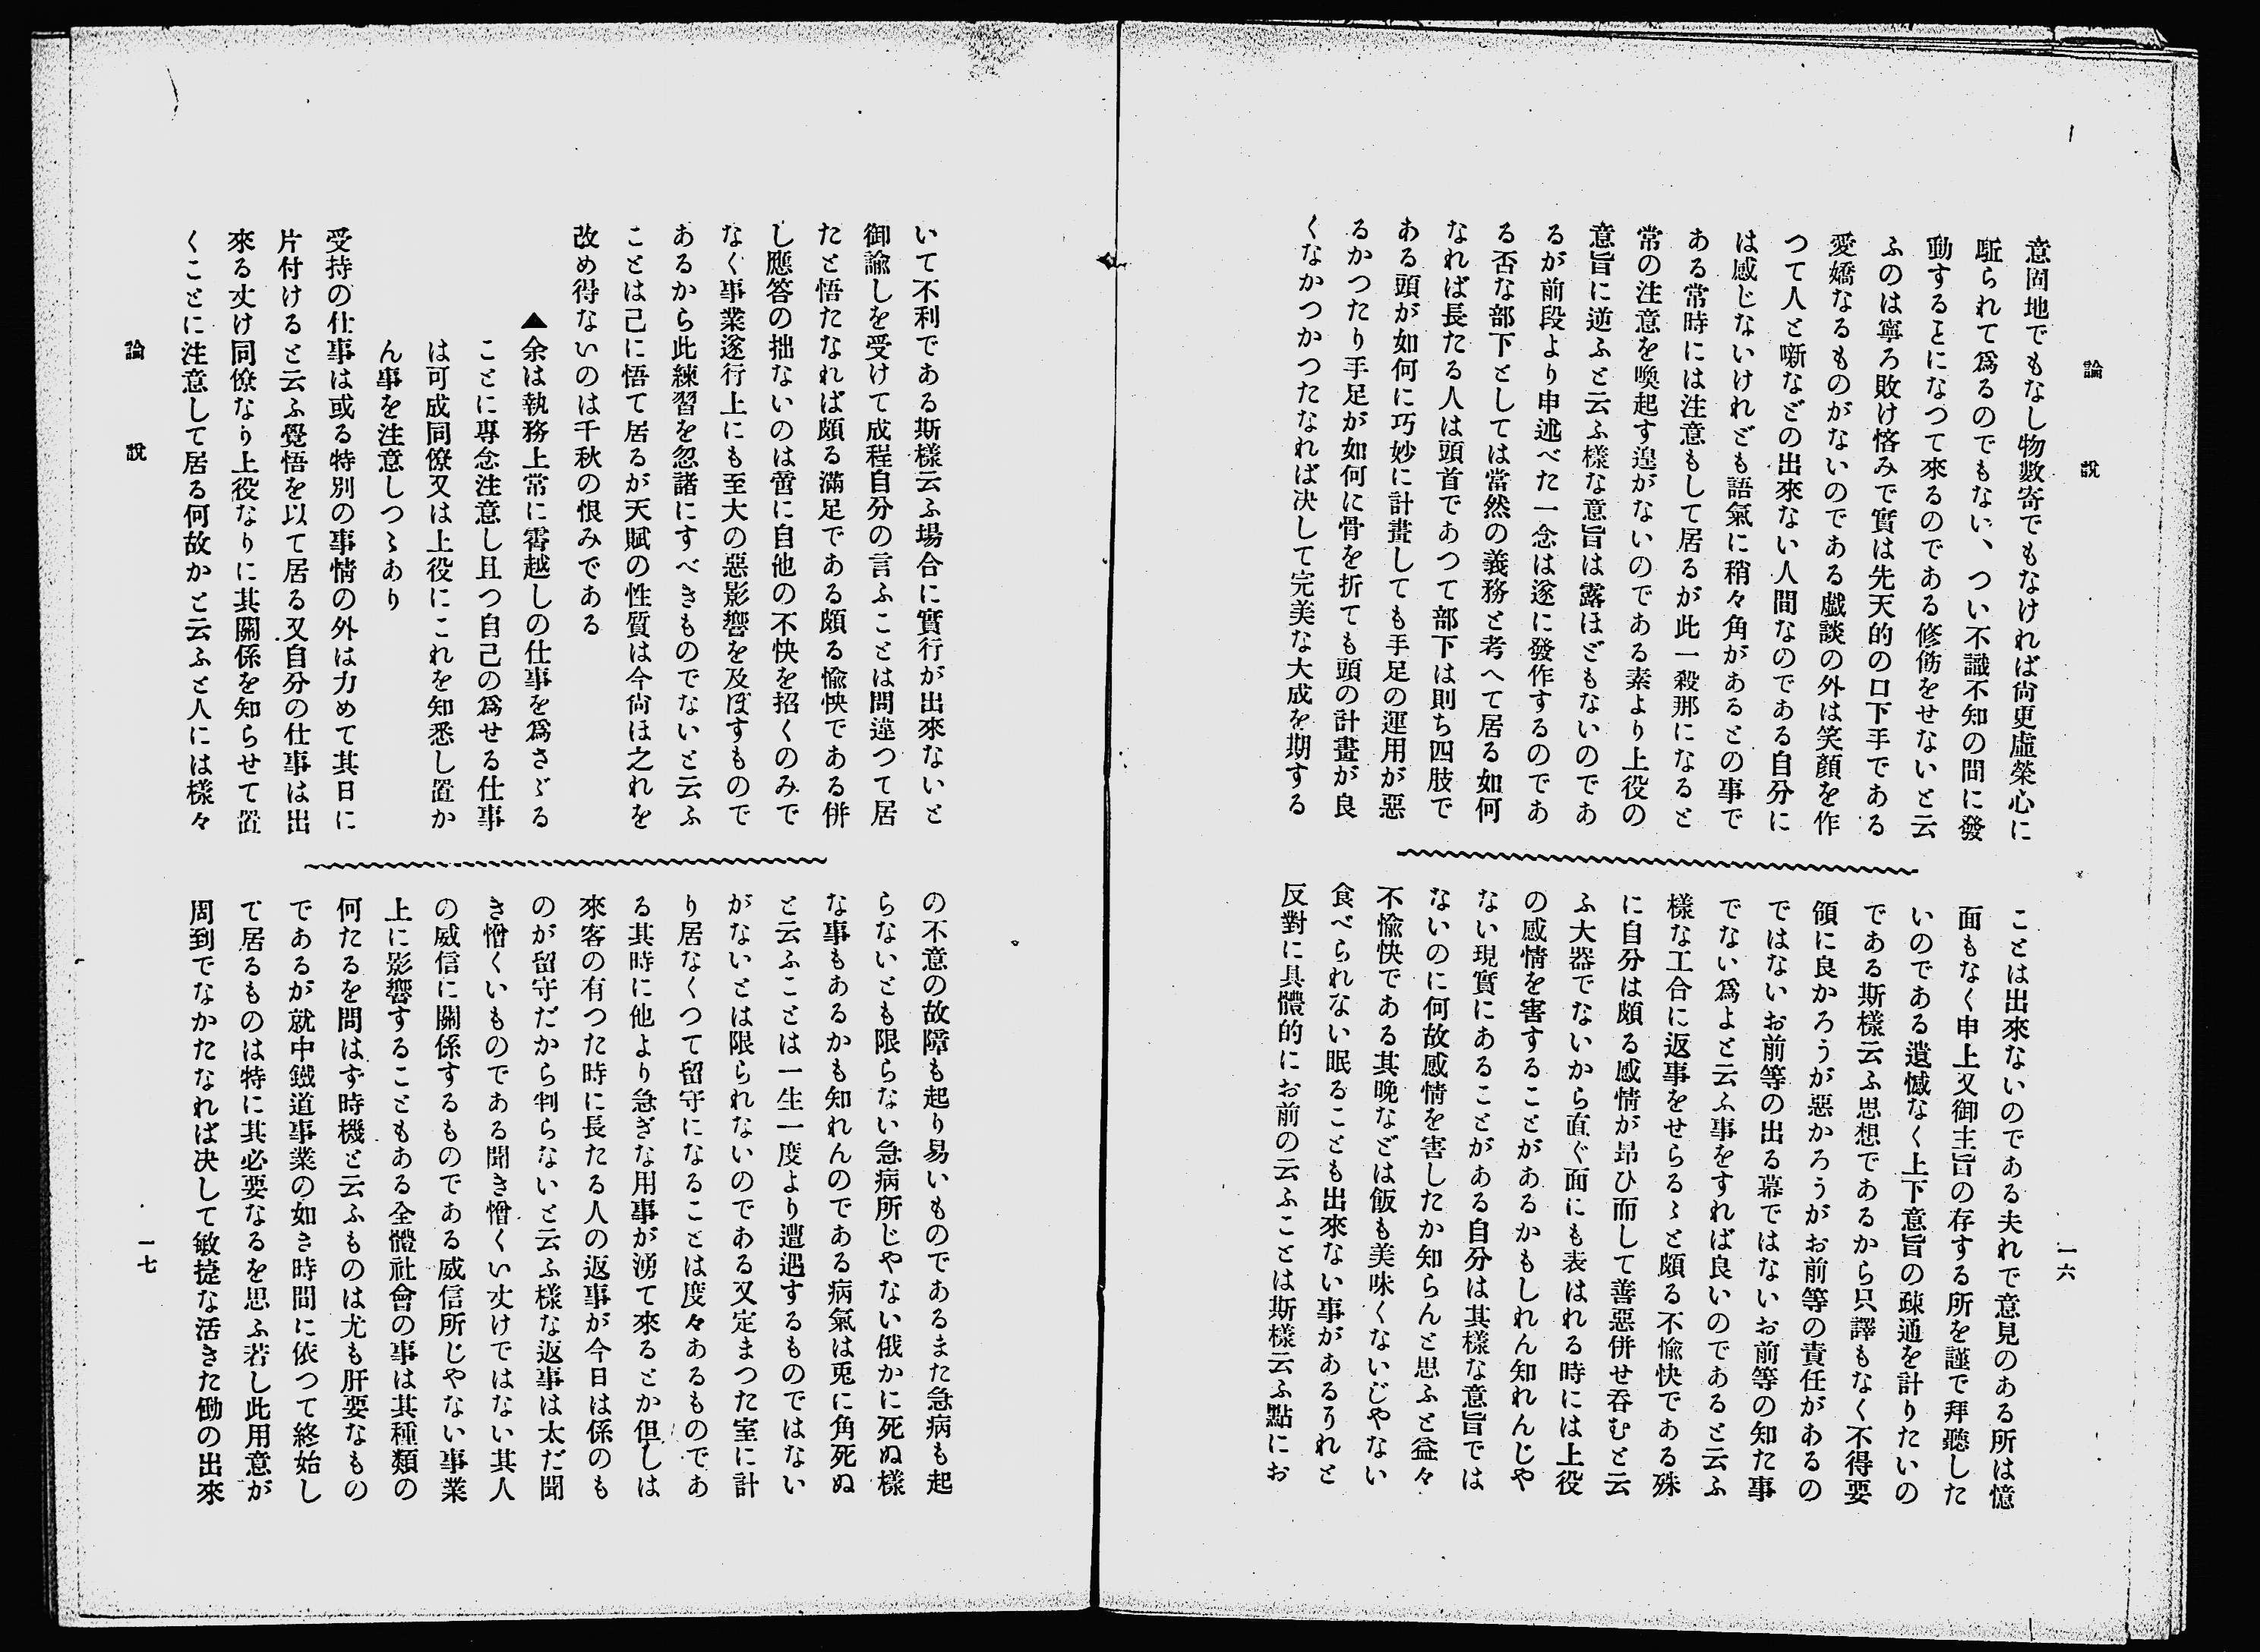 論說
一六
意固地でもなし物數寄でもなければ尙更虛榮心に
駈られて爲るのでもない、つい不識不知の間に發
動することになつて來るのである修飭をせないと云
ふのは寧ろ敗け悋みで實は先天的の口下手である
愛嬌なるものがないのである戲談の外は笑顏を作
つて人と噺などの出來ない人間なのである自分に
は感じないけれども語氣に稍々角があるとの事で
ある常時には注意もして居るが此一殺那になると
常の注意を喚起す遑がないのである素より上役の
意旨に逆ふと云ふ樣な意旨は露ほどもないのであ
るが前段より申述べた一念は遂に發作するのであ
る否な部下としては當然の義務と考へて居る如何
なれば長たる人は頭首であつて部下は則ち四肢で
ある頭が如何に巧妙に計畫しても手足の運用が惡
るかつたり手足が如何に骨を折ても頭の計畫が良
くなかつかつたなれば决して完美な大成を期する
ことは出來ないのである夫れで意見のある所は憶
面もなく申上又御主旨の存する所を謹で拜聽した
いのである遺憾なく上下意旨の疎通を計りたいの
である斯樣云ふ思想であるから只譯もなく不得要
領に良かろうが惡かろうがお前等の責任があるの
ではないお前等の出る幕ではないお前等の知た事
でない爲よと云ふ事をすれば良いのであると云ふ
樣な工合に返事をせらるゝと頗る不愉快である殊
に自分は頗る感情が昂ひ而して善惡併せ吞むと云
ふ大器でないから直ぐ面にも表はれる時には上役
の感情を害することがあるかもしれん知れんじや
ない現實にあることがある自分は其樣な意旨では
ないのに何故感情を害したか知らんと思ふと益々
不愉快である其晚などは飯も美味くないじやない
食べられない眠ることも出來ない事があるりれと
反對に具體的にお前の云ふことは斯樣云ふ點にお
いて不利である斯樣云ふ場合に實行が出來ないと
御諭しを受けて成程自分の言ふことは間違つて居
たと悟たなれば頗る滿足である頗る愉快である併
し應答の拙ないのは啻に自他の不快を招くのみで
なく事業遂行上にも至大の惡影響を及ぼすもので
あるから此練習を忽諸にすべきものでないと云ふ
ことは己に悟て居るが天賦の性質は今尙ほ之れを
改め得ないのは千秋の恨みである
▲余は執務上常に霄越しの仕事を爲さゞる
ことに專念注意し且つ自己の爲せる仕事
は可成同僚又は上役にこれを知悉し置か
ん事を注意しつゝあり
受持の仕事は或る特別の事情の外は力めて其日に
片付けると云ふ覺悟を以て居る又自分の仕事は出
來る丈け同僚なり上役なりに其關係を知らせて置
くことに注意して居る何故かと云ふと人には樣々
の不意の故障も起り易いものであるまた急病も起
らないとも限らない急病所じやない俄かに死ぬ樣
な事もあるかも知れんのである病氣は兎に角死ぬ
と云ふことは一生一度より遭遇するものではない
がないとは限られないのである又定まつた室に計
り居なくつて留守になることは度々あるものであ
る其時に他より急ぎな用事が湧て來るとか但しは
來客の有つた時に長たる人の返事が今日は係のも
のが留守だから判らないと云ふ樣な返事は太だ聞
き憎くいものである聞き憎くい丈けではない其人
の威信に關係するものである威信所じやない事業
上に影響することもある全體社會の事は其種類の
何たるを問はず時機と云ふものは尤も肝要なもの
であるが就中鐵道事業の如き時間に依つて終始し
て居るものは特に其必要なるを思ふ若し此用意が
周到でなかたなれば决して敏捷な活きた働の出來
論說
一七